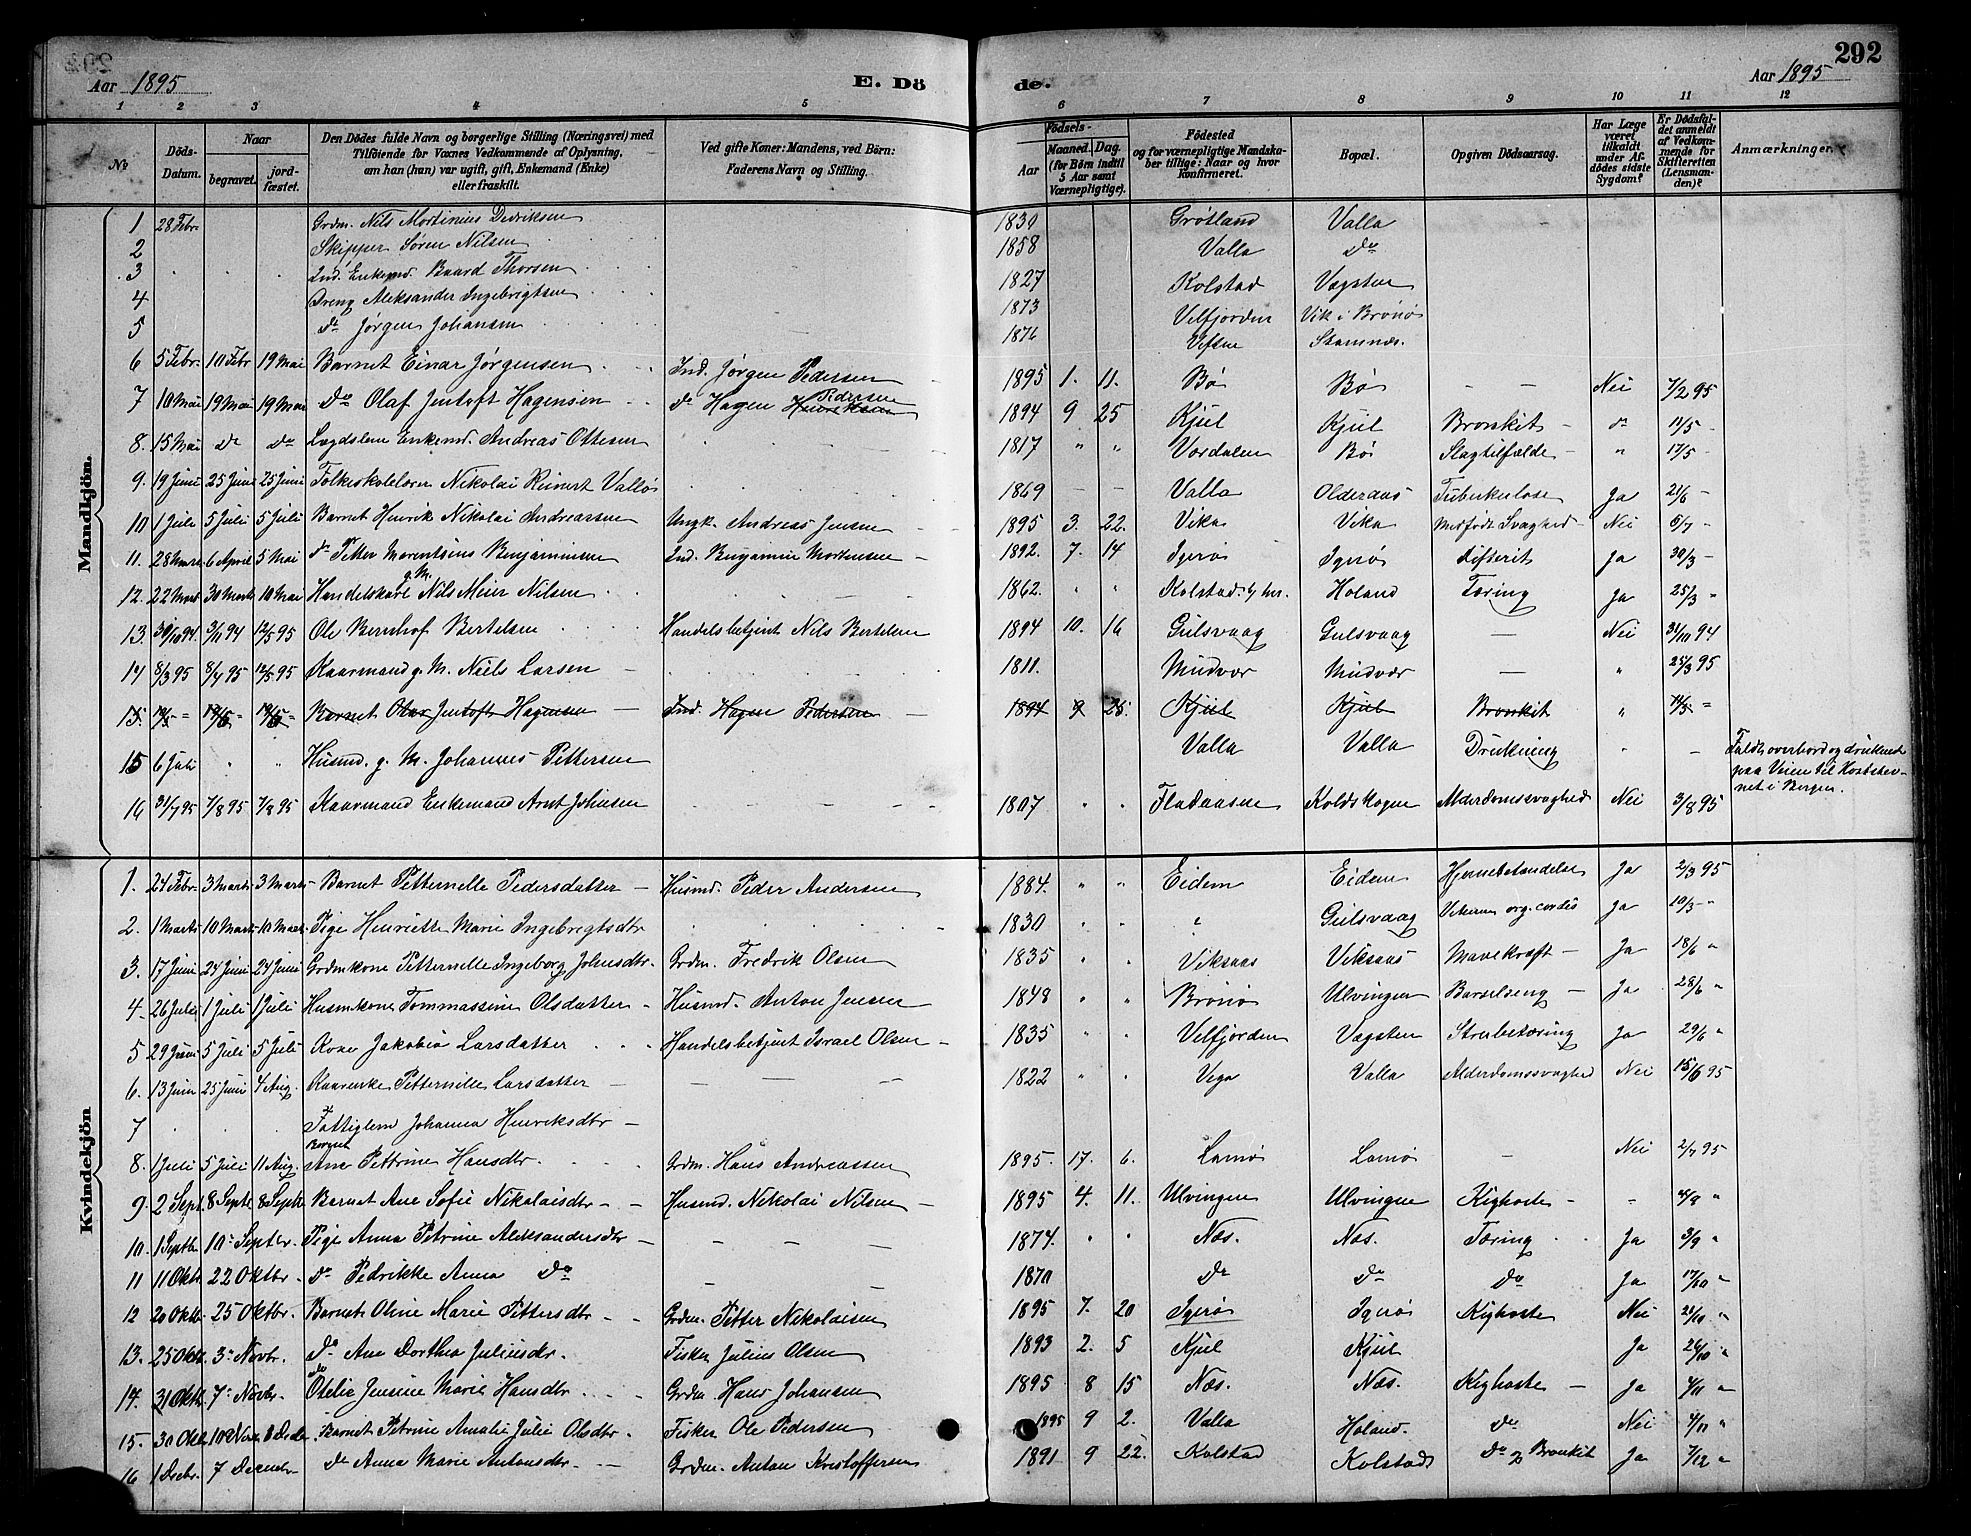 292
Aar 1895 E. Dö de. Aar 1895
1 2 3 4 5 6 7 8 9 10 11 12
No
Döds-Datum.
Naar
begravet. jordfæstet.
Den Dödes fulde Navn og borgerlige Stilling (Næringsvei) med
Tilföiende for Voxnes Vedkommende af Oplysning,
om han (hun) var ugift, gift, Enkemand (Enke)
eller fraskilt.
Ved gifte Koner: Mandens, ved Börn:
Faderens Navn og Stilling.
Födsels-
Aar Maaned. Dag.
(for Börn indtil
5 Aar samt
Værnepligtige).
Födested
og for værnepligtige Mandskaber tillige: Naar og hvor
Konfirmeret.
Bopæl.
Opgiven Dödsaarsag.
Har Læge
været
tilkaldt
under Afdödes sidste
Sygdom?
Er Dödsfaldet anmeldt
af Vedkommende for
Skifteretten
(Lensmanden)?
Anmærkninger.
Mandkjön.
1 28 Febr. Grdm. Nils Mortinius Dedriksen 1830 Grøtland Valla
2 Skipper Søren Nilsen 1858 Valla do
3 Ind. Enkemd. Baard Thorsen 1827 Kolstad Vægsten
4 Dreng Aleksander Ingebrigtsen 1873 Velfjorden Vik i Brønø
5 do Jørgen Johansen 1876 Vefsen
6 5 Febr. 10 Febr 19 Mai Barnet Einar Jørgensen Ind. Jørgen Pedersen 1895 1. 11. Bø Bø – – Nei 7/2 95
7 10 Mai 19 Mai 19 Mai do Olaf Jentoft Hagensen do Hagen Pedersen 1894 9 25 Kjul Kjul Bronkit do 11/5
8. 15 Mai do do Lægdslem Enkemd. Andreas Ottesen 1817 " " Værdalen Bø Slagtilfælde " 17/5
9. 19 Juni 25 Juni 25 Juni Folkeskolelærer Nikolai Reinert Valløs 1869 – – Valla Olderaas Tuberkulose Ja 21/6
10 1 Juli 5 Juli 5 Juli Barnet Henrik Nikolai Andreassen Ungk. Andreas Jensen 1895 3. 22. Vika Vika Medfødt Svaghed Nei 5/7
11. 28 Marts 6 April 5 Mai do Petter Morentsius Benjaminsen Ind. Benjamin Mortensen 1892. 7. 14 Igerø Igerø Difterit Ja 30/3
12. 22 Mars 30 Marts 10 Mai Handelskarl g. M. Nils Meier Nilsen 1862. " " Kolstad Holand Tæring Ja 25/3 "
13 30/10 94 3/11 94 12/5 95 Ole Bernhof Bertelsen Handelsbetjent Nils Bertelsen 1894 10. 16 Gulsvaag Gulsvaag – Nei 31/10 94
14 8/3 95 8/4 95 12/5 95 Kaarmand g. M. Niels Larsen 1811. Mudvær Mudvær – " 25/3 95
15. Barnet Olav Jentoft Hagensen Ind. Hagen Pedersen 1894 9 25. Kjul Kjul Bronkit "
15 6 Juli " " Husmd. g. M. Johannes Pettersen Valla Valla Drukning " – Faldt overbord og druknede
paa Veien til Høststevnet i Bergen.
16 31/7 95 7/8 95 7/8 95 Kaarmand Enkemand Arnt Johnsen 1807 " " Fladaasen Koldskogen Alderdomssvaghed Nei 3/8 95
Kvindekjön
1. 24 Febr. 3 Marts 3 Marts Barnet Petternelle Pedersdatter Husmd. Peder Andersen 1884. " " Eidem Eidem Hjernebetændelse Ja 2/3 95
2. 1 Marts 10 Marts 10 Marts Pige Henriette Marie Ingebregtsdtr 1830 " " Gulsvaag org. cordis Ja 10/3 "
3. 17 Juni 24 Juni 24 Juni Grdmkone Petternelle Ingeborg Johnsdtr. Grdm. Fredrik Olsen 1835 " " Viksaas Viksaas Mavekræft Ja 18/6 "
4. 26 Juli 1 Juli 1 Juli Husmkone Tommassine Olsdatter Husmd. Anton Jensen 1848 " " Brønø Ulvingen Barselseng Ja 28/6 "
5 29 Juni 5 Juli 5 Juli Kone Jakobia Larsdatter Handelsbetjent Israel Olsen 1835 " " Velfjorden Vægsten Strubetæring Ja 29/6 "
6. 13 Juni 25 Juni 4 Aug. Kaarenke Petternille Larsdatter 1822 " " Vega Valla Alderdomssvaghed Nei 15/6 95
7 Fattiglem Johanna Henriksdtr
8. 1 Juli 5 Juli 11 Aug. Barnet Ane Pettrine Hansdtr. Grdm. Hans Andreassen 1895. 17. 6. Lamø Lamø – Nei 2/7 95
9. 2 Sept. 8 Septbr 8 Septbr Barnet Ane Sofie Nikolaisdtr Husmd. Nikolai Nilsen 1895 4. 11. Ulvingen Ulvingen Kighoste – 4/9 "
10. 1 Septbr. 10 Septbr. Pige Anna Petrine Aleksandersdtr 1874. " " Næs. Næs. Tæring Ja 3/9 "
11 11 Oktbr. 22 Oktbr. do Pedrikke Anna do 1870 do do do Ja 17/10 "
12 20 Oktbr. 25 Oktbr. Barnet Oline Marie Pettersdtr Grdm. Petter Nikolaisen 1895 7. 20 Igerø Igerø Kighoste Nei 21/10 "
13. 25 Oktbr. 3 Novbr. do Ane Dorthea Juliusdtr. Fisker Julius Olsen 1893 2. 5 Kjul Kjul Ja 26/10 "
14. 31 Oktbr. 7 Novbr. do Otelie Jensine Marie Hansdtr Grdm. Hans Johansen 1895 8 15 Næs. Næs. Kighoste Ja 4/11 "
15. 30 Oktbr. 10 Novbr. 8 Decbr. Barnet Petrine Amalie Julie Olsdtr. Fisker Ole Pedersen 1895 9 2. Valla Holand. do Nei 4/11 "
16 1 Decbr. 7 Decembr do Anna Marie Antonsdtr. Grdm. Anton Kristoffersen 1891 9 22. Kolstad Kolstad do og Bronkit Ja 7/12 "